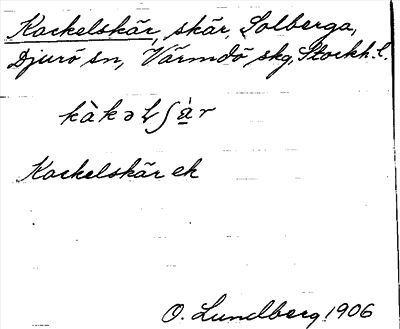 Kackelskär, skär, Solberga,
Djurö sn, Värmdö skg, Stockh. l.
kàkəɫʃä̀r
Kackelskär ek
O. Lundberg 1906